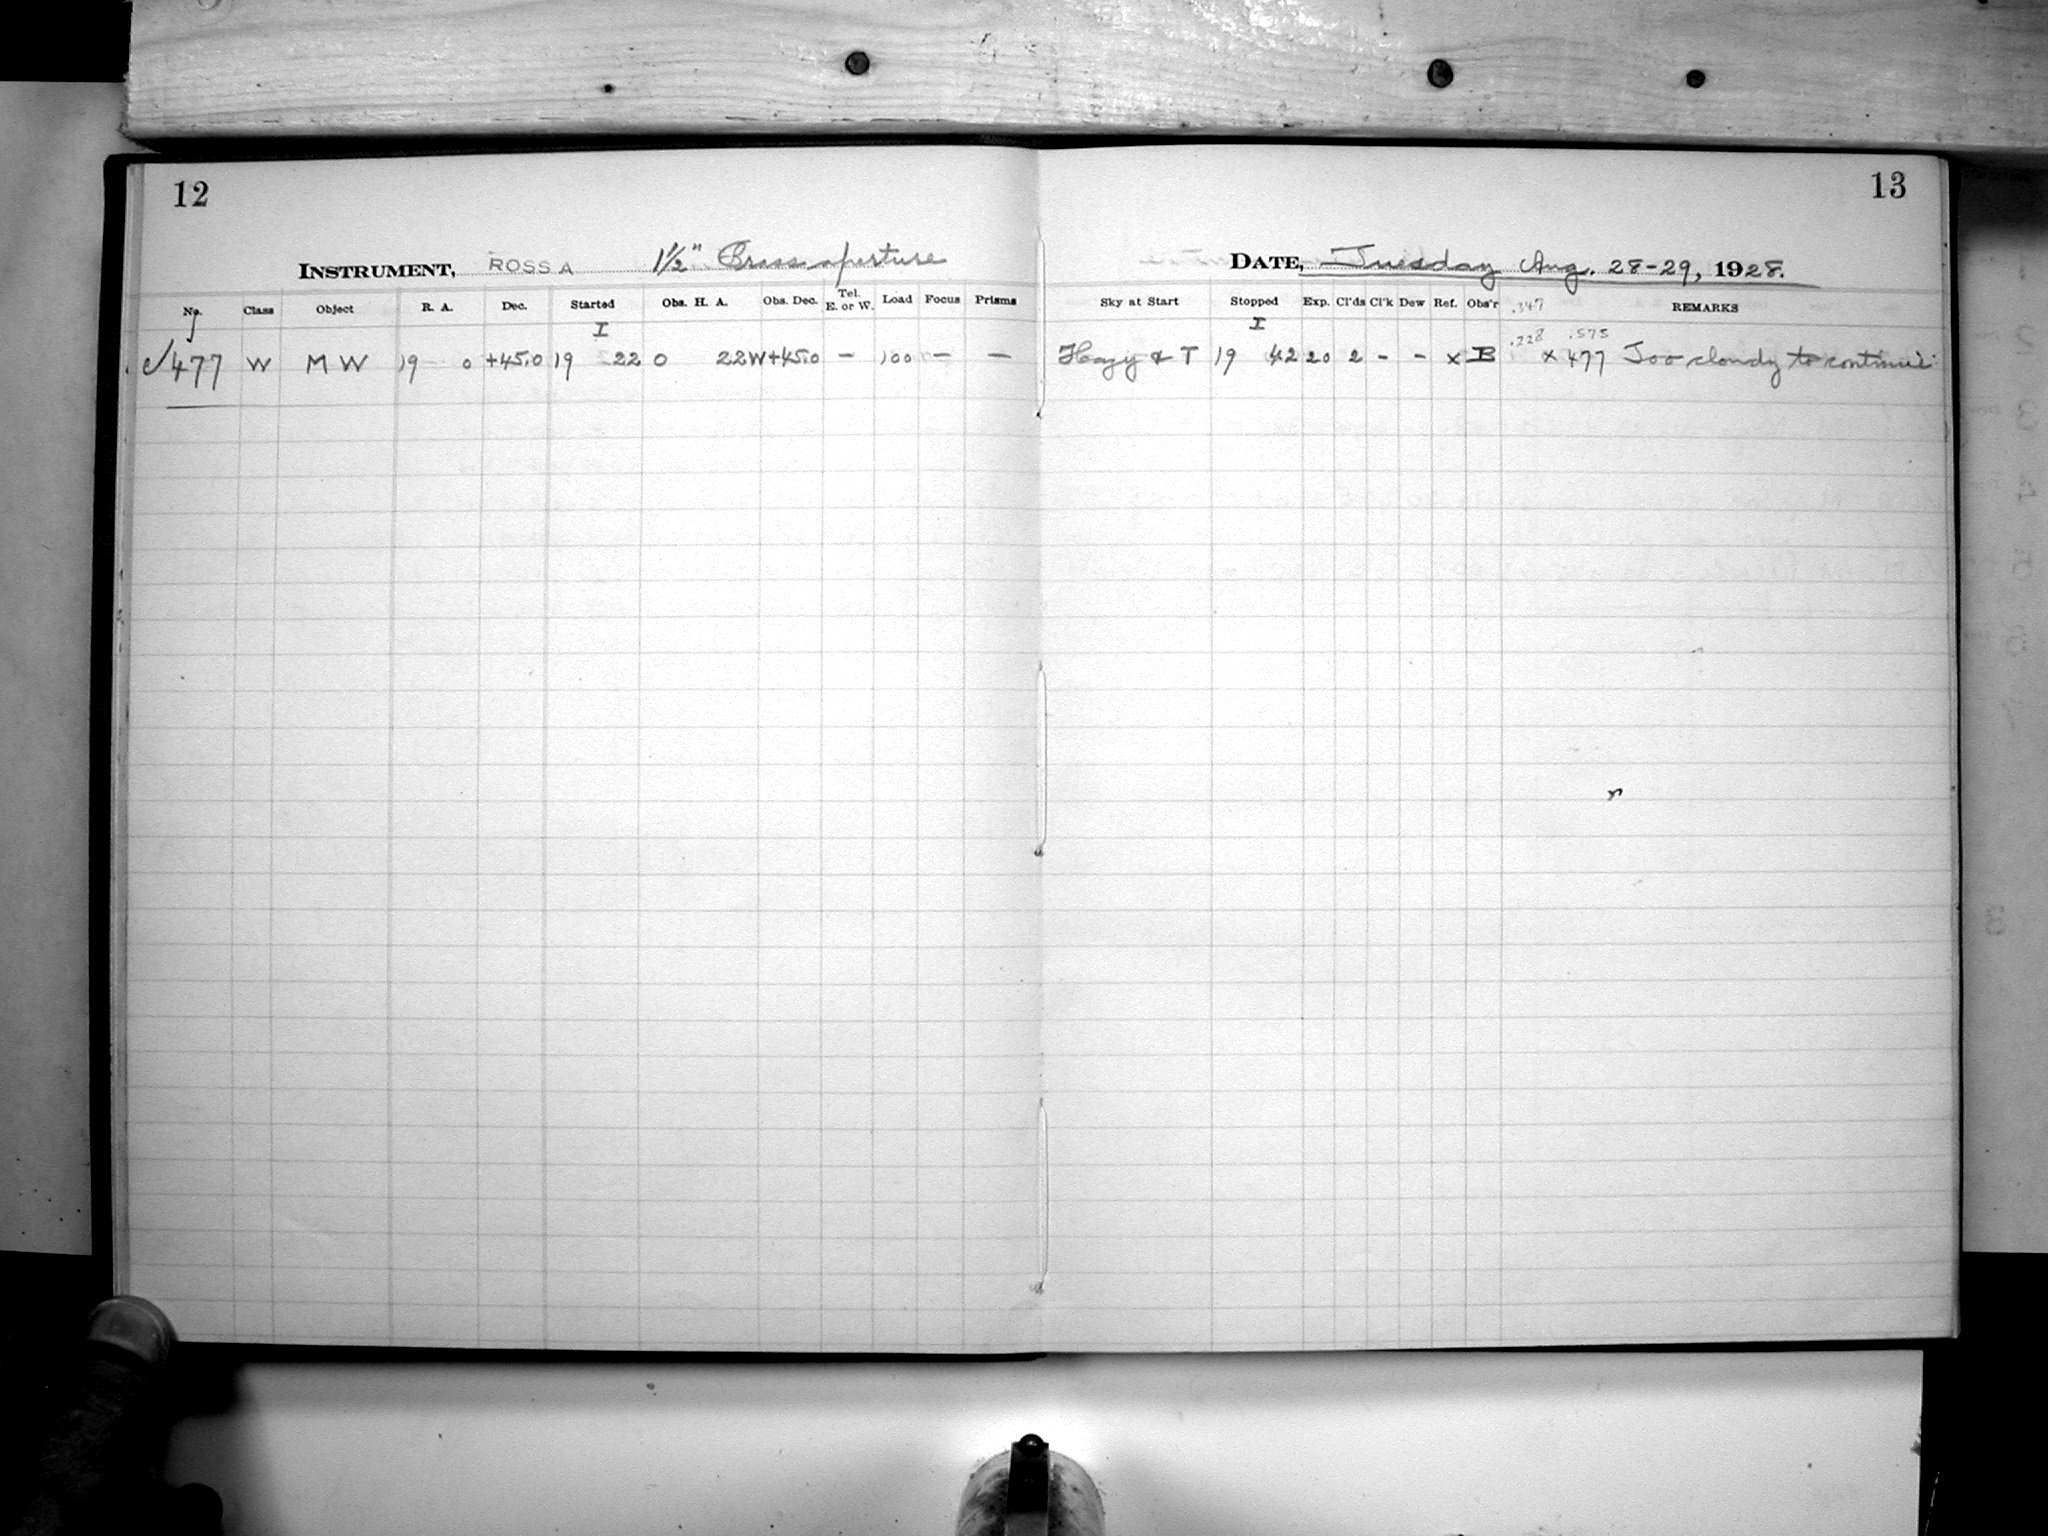 12
INSTRUMENT, ROSS A 1½" Brass aperture
No. Class Object R. A. Dec. Started Obs. H. A. Obs. Dec. Tel. E. or W. Load Focus Prisms
I
✓477 W M W 19 0 +45.0 19 22 0 22W +45.0 – 100 – –
13
DATE, Tuesday Aug. 28-29, 1928.
Sky at Start Stopped Exp. Cl'ds Cl'k Dew Ref. Obs'r .347 REMARKS
I .228 .575
Hazy & T 19 42 20 2 - - x B x 477 Too cloudy to continue.